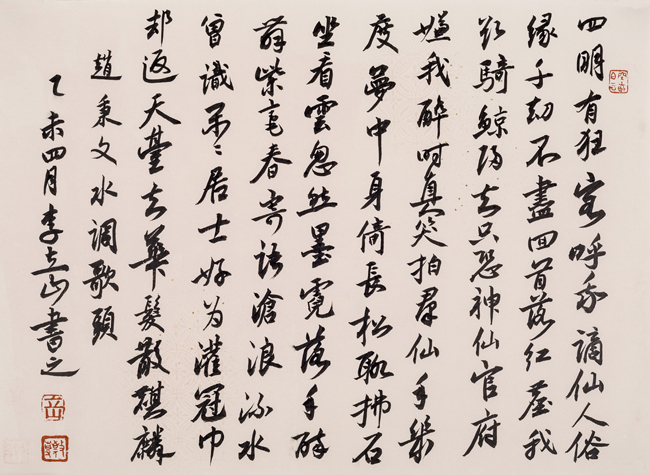 四明有狂客呼我謫仙人俗
緣千劫不盡回首落紅塵我
欲騎鯨歸去只恐神仙官府
嫌我醉時真笑拍群仙手幾
度夢中身倚長松聊拂石
坐看雲忽然墨霓落手醉
舞紫毫春寄語滄浪流水
曾識閑々居士好為灌冠巾
却返天臺去華髮散麒麟
趙秉文水調歌頭
乙未四月李立山書之